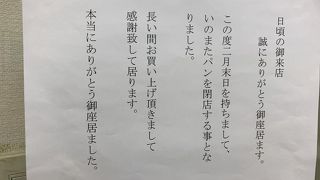 日頃の御来店
誠にありがとう御座居ます。
この度二月末日を持ちまして、
いのまたパンを閉店する事とな
りました。
長い間お買い上げ頂きまして
感謝致して居ります。
本当にありがとう御座居ました。